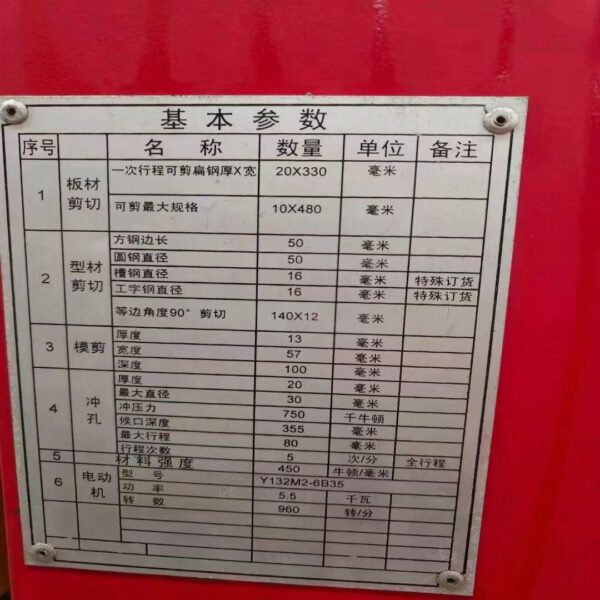 基本参数
序号 名称 数量 单位 备注
1 板材剪切 一次行程可剪扁钢厚X宽 20X330 毫米
可剪最大规格 10X480 毫米
2 型材剪切 方钢边长 50 毫米
圆钢直径 50 毫米
槽钢直径 16 毫米 特殊订货
工字钢直径 16 毫米 特殊订货
等边角度90° 剪切 140X12 毫米
3 模剪 厚度 13 毫米
宽度 57 毫米
深度 100 毫米
4 冲孔 厚度 20 毫米
最大直径 30 毫米
冲压力 750 千牛顿
候口深度 355 毫米
最大行程 80 毫米
行程次数 5 次/分 全行程
5 材料强度 450 牛顿/毫米
6 电动机 型号 Y132M2-6B35
功率 5.5 千瓦
转数 960 转/分